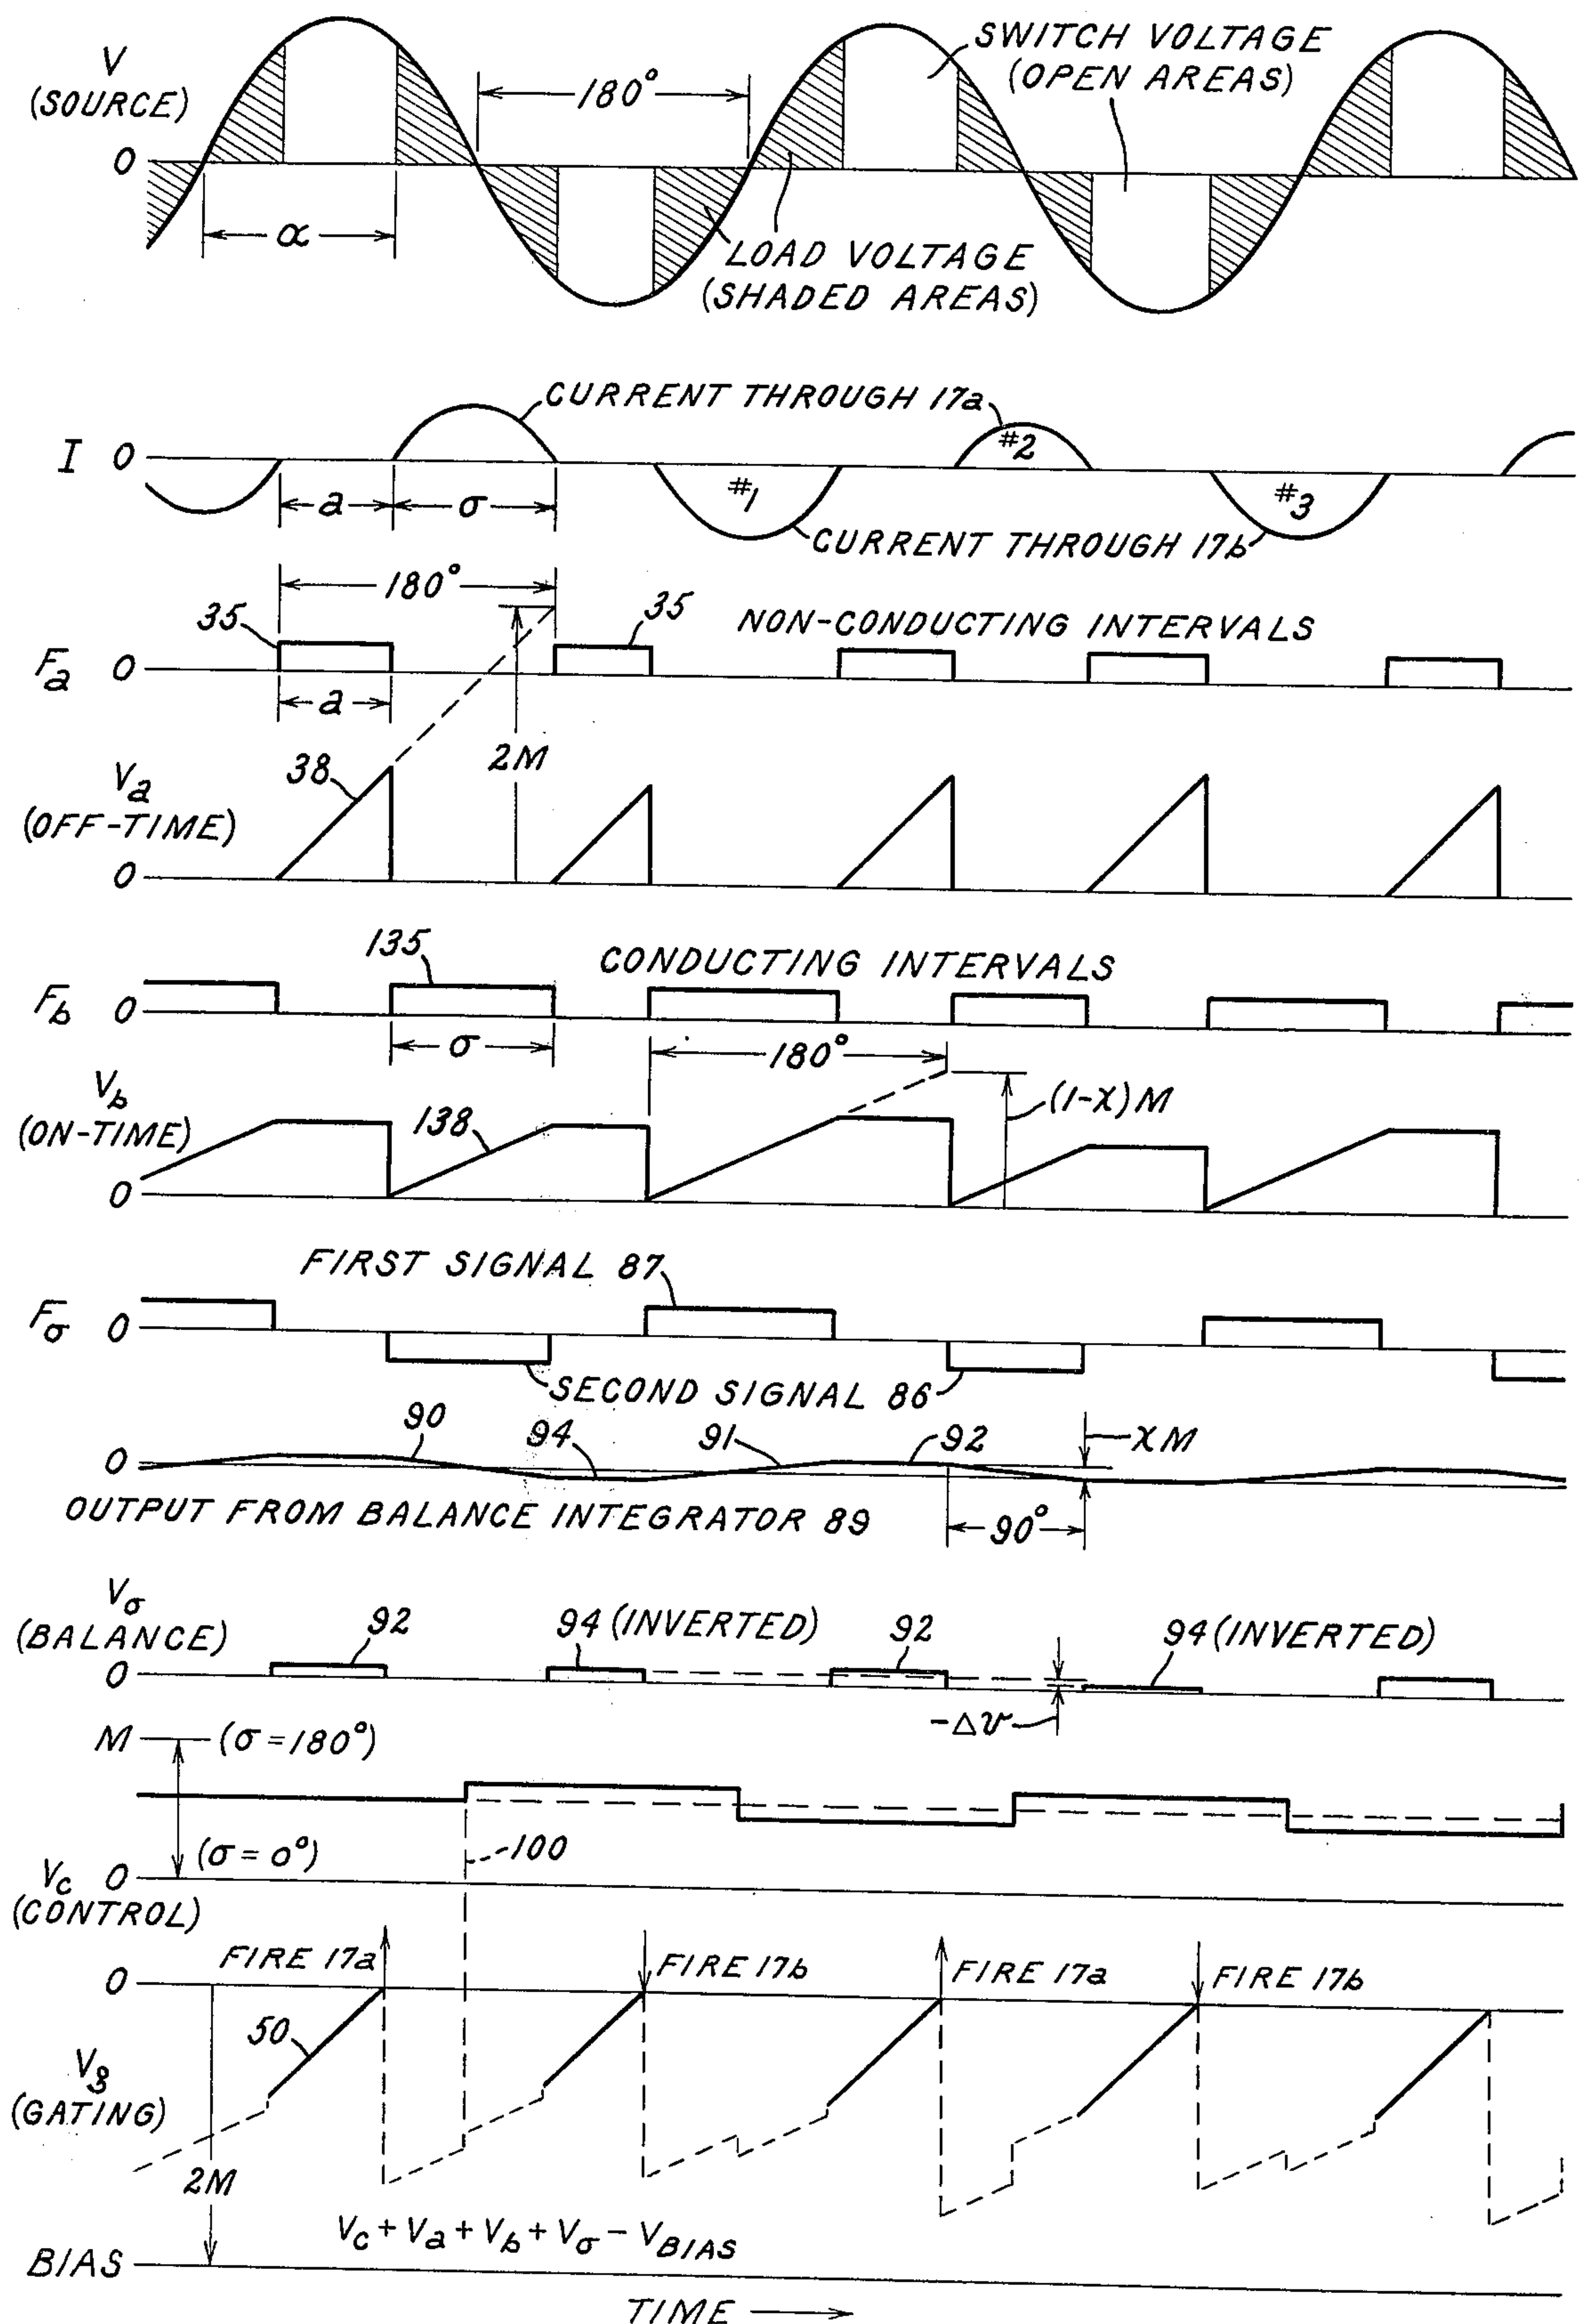 V
(SOURCE)
0
180°
SWITCH VOLTAGE
(OPEN AREAS)
α
LOAD VOLTAGE
(SHADED AREAS)
I 0
CURRENT THROUGH 17a
#2
#1
#3
a
σ
CURRENT THROUGH 17b
180°
35
35
NON-CONDUCTING INTERVALS
Fa 0
a
2M
38
Va
(OFF-TIME)
0
135
CONDUCTING INTERVALS
Fb 0
σ
180°
Vb
(ON-TIME)
138
(1-X)M
0
FIRST SIGNAL 87
Fσ 0
SECOND SIGNAL 86
90
94
91
92
XM
0
OUTPUT FROM BALANCE INTEGRATOR 89
90°
Vσ
(BALANCE)
92
94 (INVERTED)
92
94 (INVERTED)
0
-Δv
M
(σ=180°)
(σ=0°)
100
Vc 0
(CONTROL)
FIRE 17a
FIRE 17b
FIRE 17a
FIRE 17b
0
50
Vg
(GATING)
2M
Vc + Va + Vb + Vσ - VBIAS
BIAS
TIME